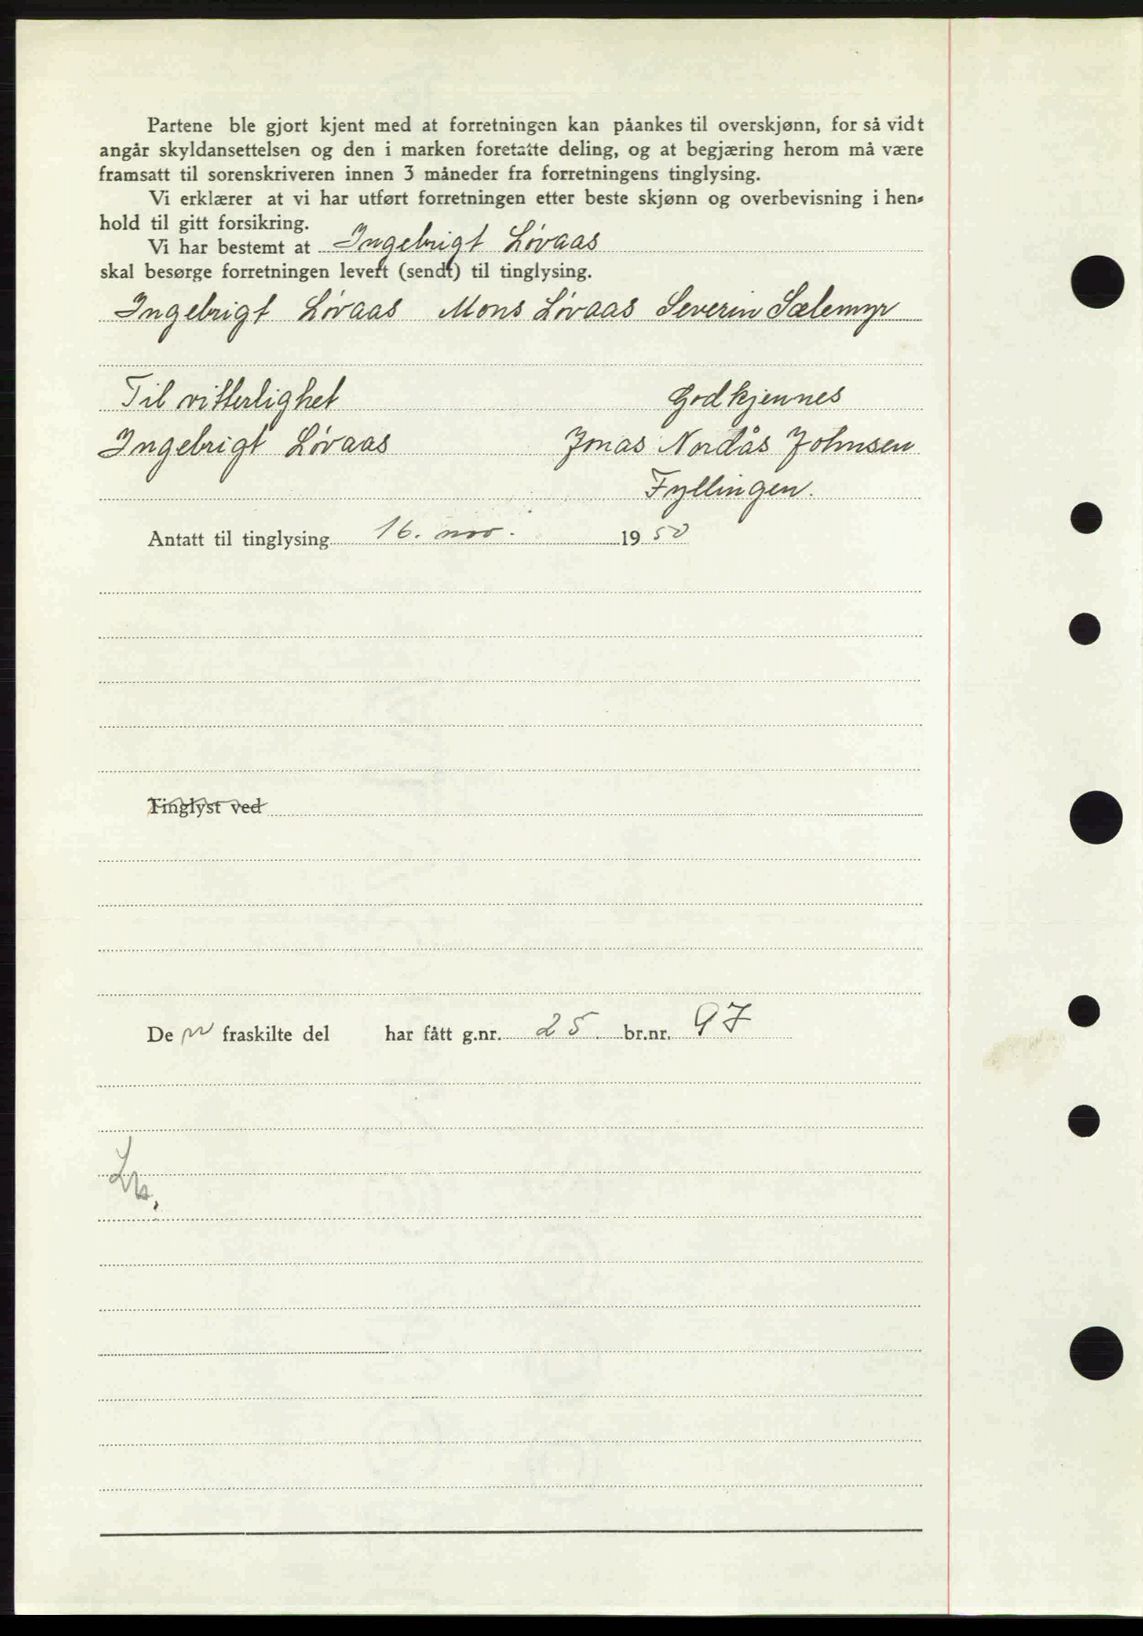 Partene ble gjort kjent med at forretningen kan påankes til overskjønn, for så vidt
angår skyldansettelsen og den i marken foretatte deling, og at begjæring herom må være
framsatt til sorenskriveren innen 3 måneder fra forretningens tinglysing.
Vi erklærer at vi har utført forretningen etter beste skjønn og overbevisning i hen-
hold til gitt forsikring.
Vi har bestemt at Ingebrigt Løvaas
skal besørge forretningen levert (sendt) til tinglysing.
Ingebrigt Løvaas Mons Løvaas Severin Sælemyr
Til vitterlighet Godkjennes
Ingebrigt Løvaas Jonas Nordås Johnsen
Fyllingen.
Antatt til tinglysing 16. nov. 1950
Tinglyst ved
De n fraskilte del har fått g.nr. 25. br.nr. 97